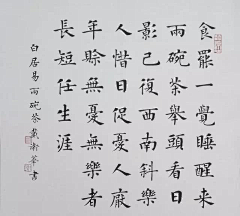 食罷一覺睡醒來
兩碗茶舉頭看日
影已復西南斜樂
人惜日促憂人厭
年賒無憂無樂者
長短任生涯
白居易兩碗茶 戴 書